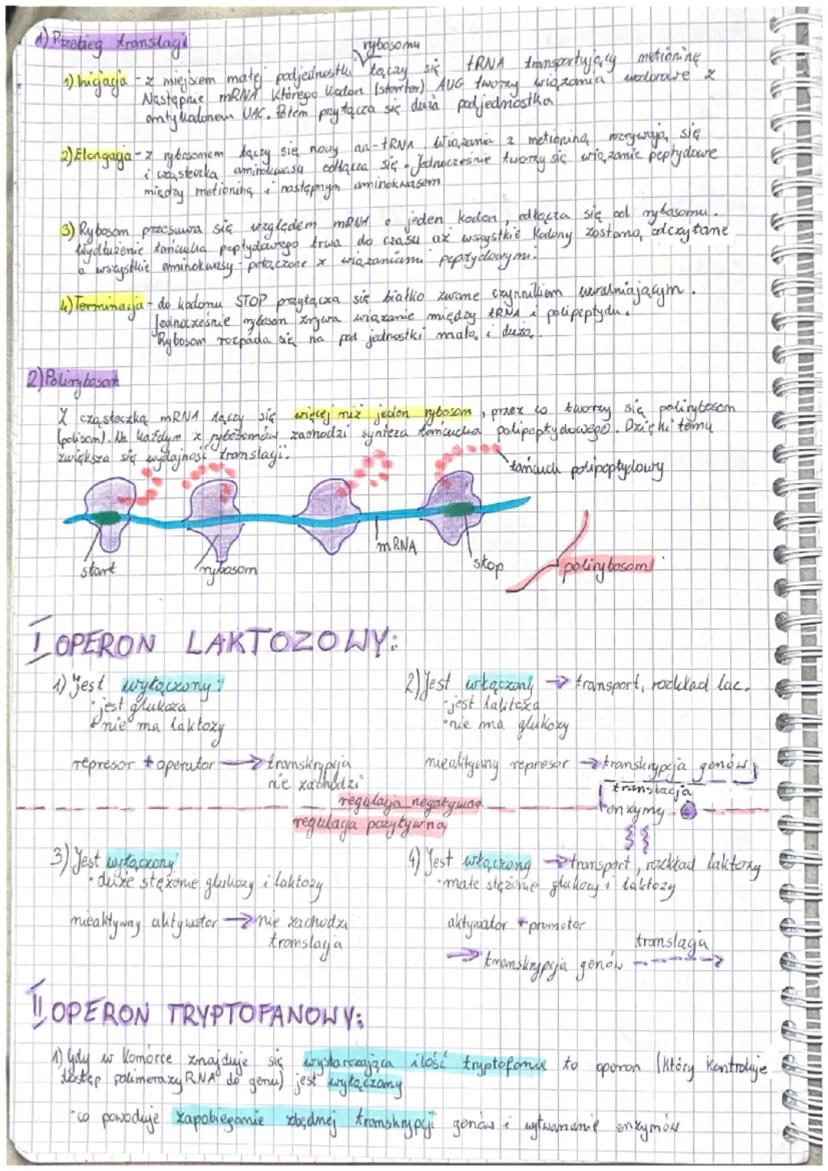 1) Przebieg translacji
rybosomu
1) Inicjacja - z miejscem małej podjednostki łączy się tRNA transportujący metioninę
Następnie mRNA którego kodon (startor) AUG tworzy wiązania wodorowe z
antykodonem UAC. Potem przyłącza się duża podjednostka
2) Elongacja - z rybosomem łączy się nowy aa-tRNA. Wiązania z metioniną
i cząsteczka aminokwasu odłącza się. Jednocześnie tworzy się wiązanie peptydowe
między metioniną i następnym aminokwasem
3) Rybosom przesuwa się względem mRNA o jeden kodon, odłącza się od rybosomu.
Wydłużenie łańcucha peptydowego trwa do czasu aż wszystkie kodony zostaną odczytane
a wszystkie aminokwasy połączone z wiązaniami peptydowymi.
4) Terminacja - do kodonu STOP przyłącza się białko zwane czynnikiem uwalniającym.
Jednocześnie rybosom zrywa wiązanie między tRNA i polipeptydu.
Rybosom rozpada się na pod jednostki małą i dużą.
2) Polirybosom
Z cząsteczką mRNA łączy się więcej niż jeden rybosom, przez co tworzy się polirybosom
(polisom). Na każdym z rybosomów zachodzi synteza łańcucha polipeptydowego. Dzięki temu
zwiększa się wydajność translacji.
łańcuch polipeptydowy
start
rybosom
mRNA
stop
polirybosom
I OPERON LAKTOZOWY:
1) Jest wyłączony:
• jest glukoza
• nie ma laktozy
represor + operator → transkrypcja
nie zachodzi
2) Jest włączony → transport, rozkład lac.
• jest laktoza
• nie ma glukozy
nieaktywny represor → transkrypcja genów
translacja
enzymy
regulacja negatywna
regulacja pozytywna
3) Jest wyłączony
• duże stężenie glukozy i laktozy
nieaktywny aktywator → nie zachodzi
translacja
4) Jest włączony → transport, rozkład laktozy
• małe stężenie glukozy i laktozy
aktywator + promotor
→ transkrypcja genów
translacja
II OPERON TRYPTOFANOWY:
1) Gdy w komórce znajduje się wystarczająca ilość tryptofanu to operon (który kontroluje
dostęp polimerazy RNA do genu) jest wyłączony
• co powoduje zapobieganie zbędnej transkrypcji genów i wytwarzanie enzymów